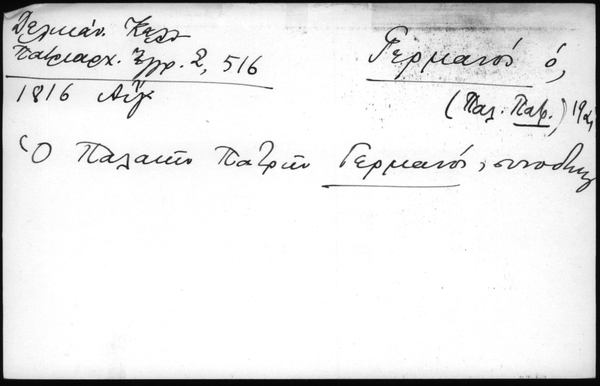 Δελικάν. Καλλ
Πατριαρχ. Ἔγγρ. 2, 516
1816 Αὔγ
Γερμανός ὁ,
(Παλ. Πατρ.)
Ὁ Παλαιῶν Πατρῶν Γερμανός, συνοδικ